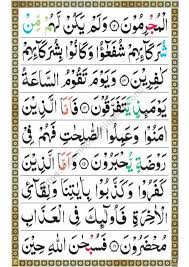 الْمُجْرِمُونَ ۝ وَلَمْ يَكُنْ لَّهُمْ مِّنْ
شُرَكَآئِهِمْ شُفَعٰٓؤُا وَكَانُوْا بِشُرَكَآئِهِمْ
كٰفِرِيْنَ ۝ وَيَوْمَ تَقُوْمُ السَّاعَةُ
يَوْمَئِذٍ يَّتَفَرَّقُوْنَ ۝ فَاَمَّا الَّذِيْنَ
اٰمَنُوْا وَعَمِلُوا الصّٰلِحٰتِ فَهُمْ فِيْ
رَوْضَةٍ يُّحْبَرُوْنَ ۝ وَاَمَّا الَّذِيْنَ
كَفَرُوْا وَكَذَّبُوْا بِاٰيٰتِنَا وَلِقَآئِ
الْاٰخِرَةِ فَاُولٰٓئِكَ فِي الْعَذَابِ
مُحْضَرُوْنَ ۝ فَسُبْحٰنَ اللّٰهِ حِيْنَ